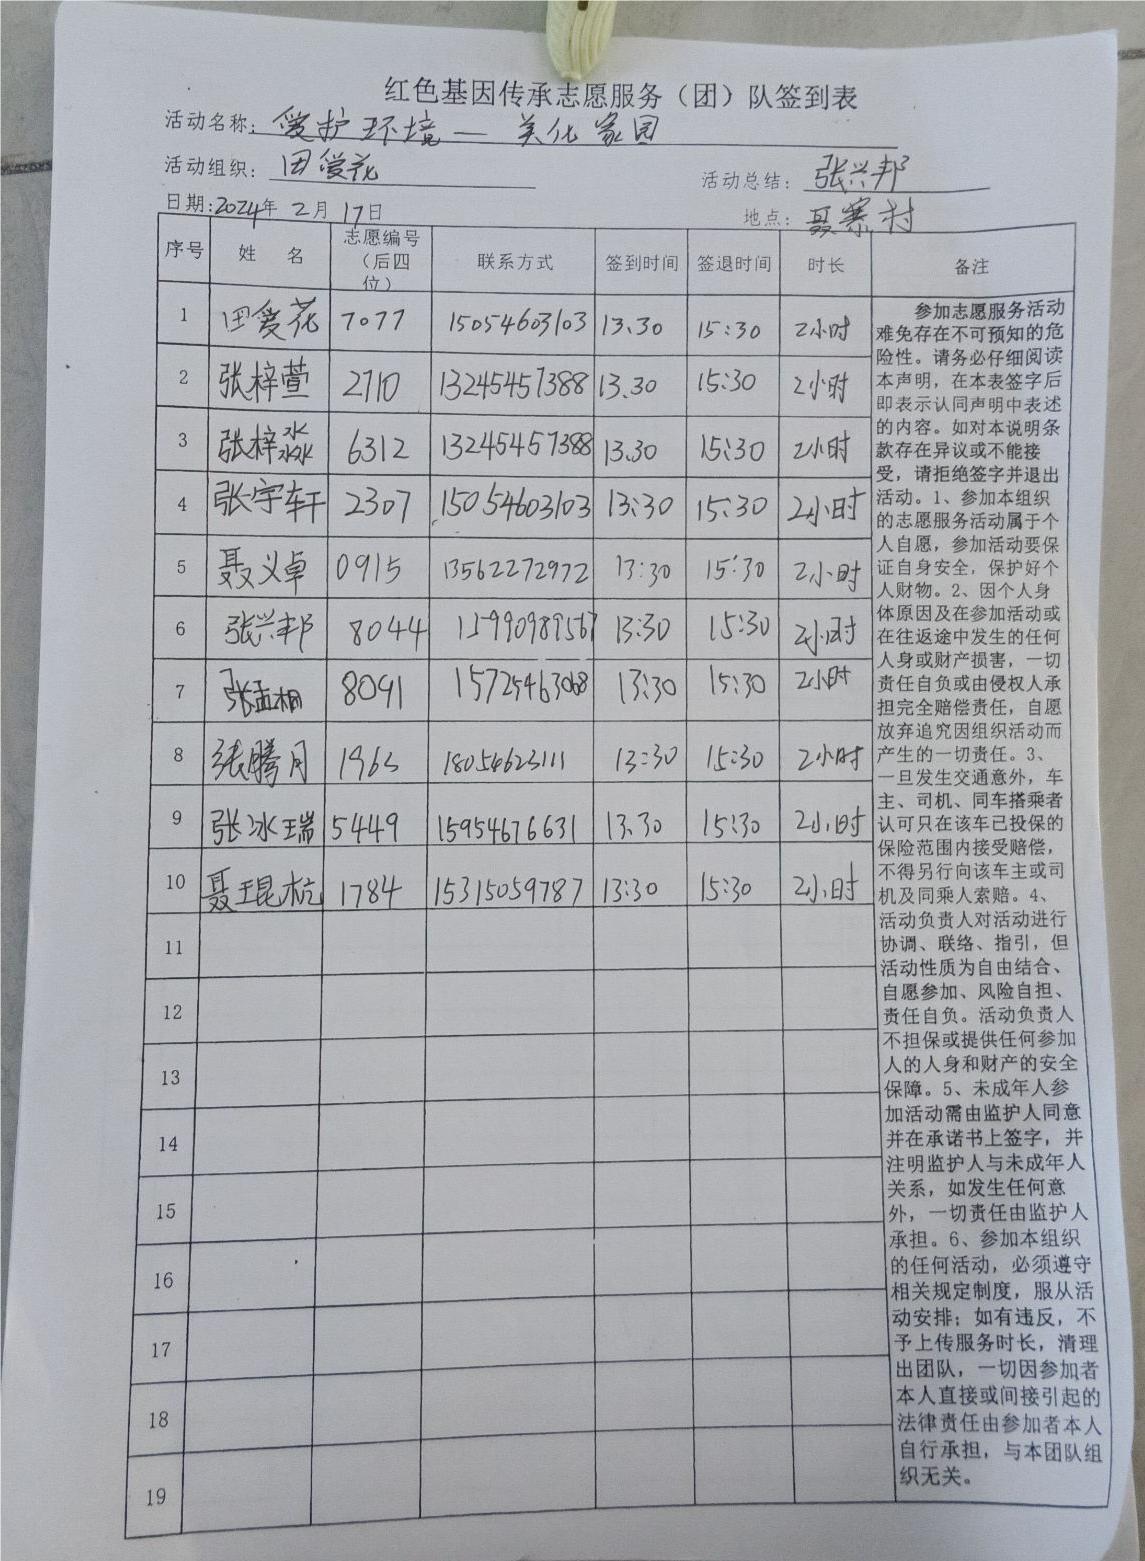 红色基因传承志愿服务（团）队签到表
活动名称：爱护环境—美化家园
活动组织：田爱花 活动总结：张兴邦
日期:2024年 2月 17日 地点：聂寨村
序号 姓 名 志愿编号（后四位） 联系方式 签到时间 签退时间 时长 备注
1 田爱花 7077 15054603103 13.30 15:30 2小时
2 张梓萱 2710 13245457388 13.30 15:30 2小时
3 张梓淼 6312 13245457388 13.30 15:30 2小时
4 张宇轩 2307 15054603103 13:30 15:30 2小时
5 聂义卓 0915 13562272972 13:30 15:30 2小时
6 张兴邦 8044 15990989567 13:30 15:30 2小时
7 张孟桐 8091 15725463068 13:30 15:30 2小时
8 张腾月 1965 18054623111 13:30 15:30 2小时
9 张冰瑞 5449 15954676631 13.30 15:30 2小时
10 聂琨杭 1784 15315059787 13:30 15:30 2小时
11
12
13
14
15
16
17
18
19
参加志愿服务活动
难免存在不可预知的危
险性。请务必仔细阅读
本声明，在本表签字后
即表示认同声明中表述
的内容。如对本说明条
款存在异议或不能接
受，请拒绝签字并退出
活动。1、参加本组织
的志愿服务活动属于个
人自愿，参加活动要保
证自身安全，保护好个
人财物。2、因个人身
体原因及在参加活动或
在往返途中发生的任何
人身或财产损害，一切
责任自负或由侵权人承
担完全赔偿责任，自愿
放弃追究因组织活动而
产生的一切责任。3、
一旦发生交通意外，车
主、司机、同车搭乘者
认可只在该车已投保的
保险范围内接受赔偿，
不得另行向该车主或司
机及同乘人索赔。4、
活动负责人对活动进行
协调、联络、指引，但
活动性质为自由结合、
自愿参加、风险自担、
责任自负。活动负责人
不担保或提供任何参加
人的人身和财产的安全
保障。5、未成年人参
加活动需由监护人同意
并在承诺书上签字，并
注明监护人与未成年人
关系，如发生任何意
外，一切责任由监护人
承担。6、参加本组织
的任何活动，必须遵守
相关规定制度，服从活
动安排；如有违反，不
予上传服务时长，清理
出团队，一切因参加者
本人直接或间接引起的
法律责任由参加者本人
自行承担，与本团队组
织无关。